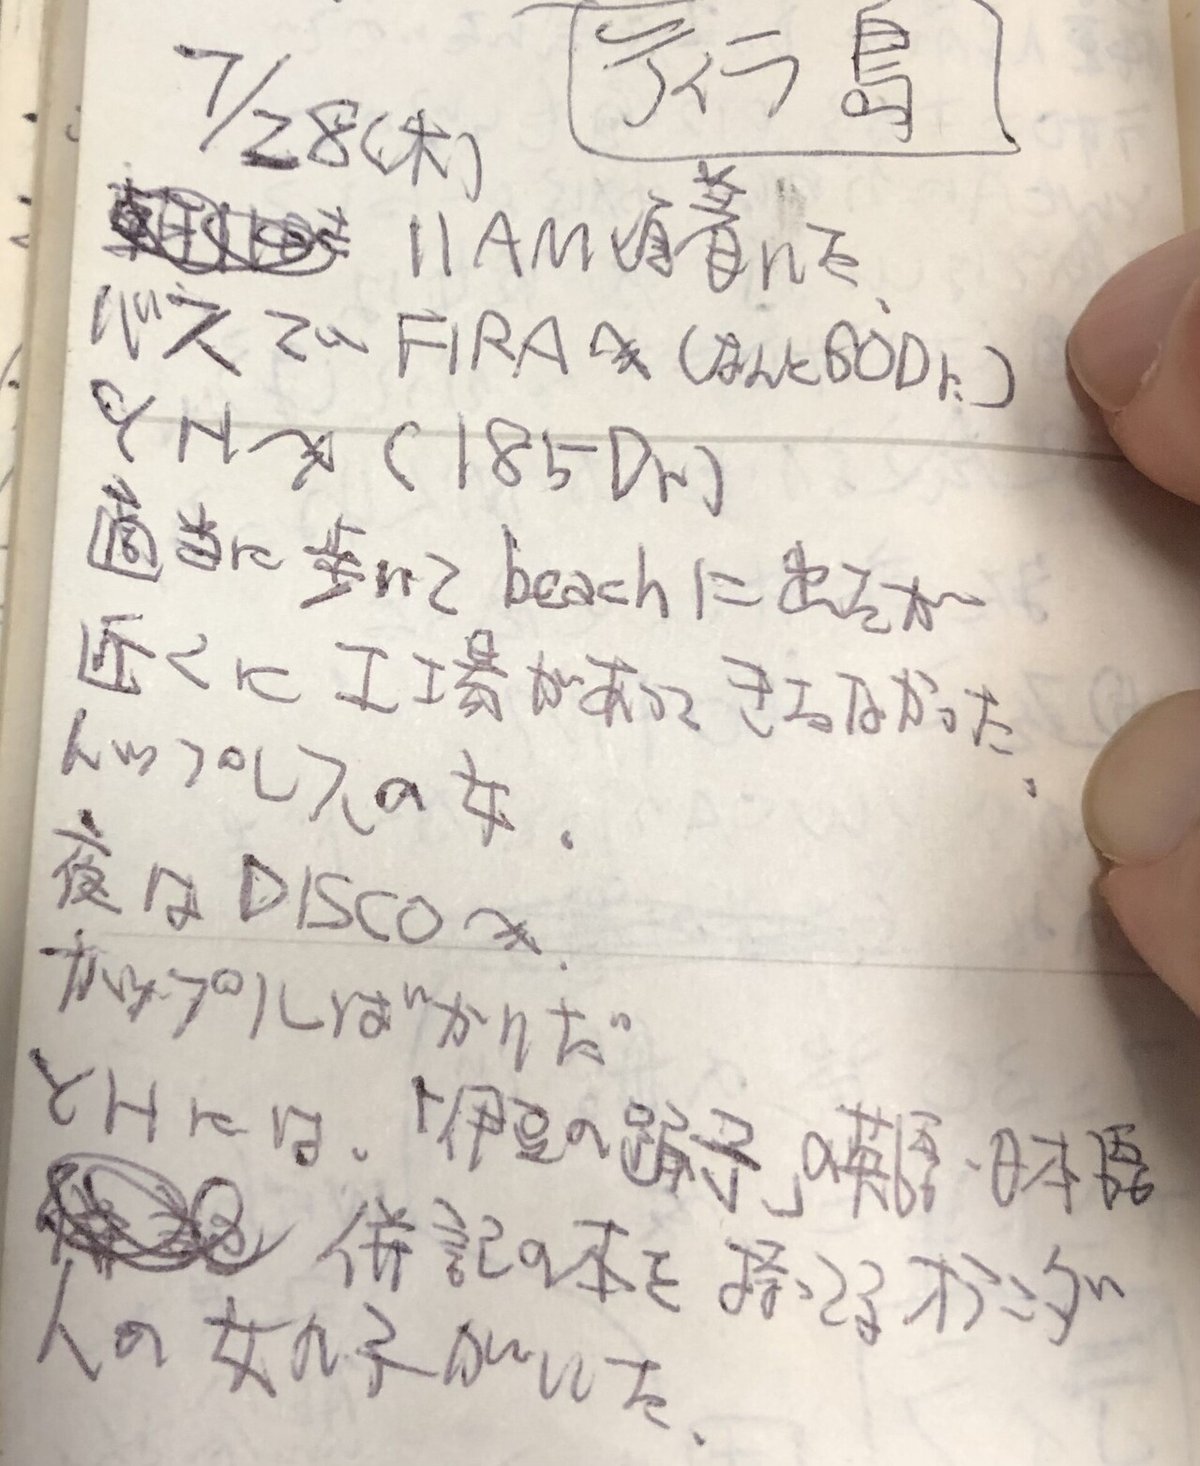 ティラ島
7/28(木)
11AM頃着いた、
バスでFIRAへ(なんと60Dr.)
YHへ(185Dr)
適当に歩いてbeachに出たが
近くに工場があってきたなかった、
トップレスの女.
夜はDISCOへ.
カップルばかりだ
YHには、「伊豆の踊子」の英語・日本語
併記の本を持ってるオランダ
人の女の子がいた.